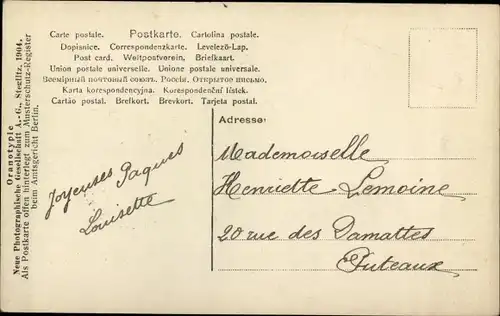 Carte postale. Postkarte. Cartolina postale.
Dopisnice. Correspondenzkarte. Levelező-Lap.
Post card. Weltpostverein, Briefkaart.
Union postale universelle. Unione postale universale.
Всемірный почтовый союзъ. Россія. Открытое письмо.
Karta korespondencyjna. Korespondenční lístek.
Cartão postal. Brefkort. Brevkort. Tarjeta postal.
Oranotypie
Neue Photographische Gesellschaft A.-G., Steglitz, 1904.
Als Postkarte offen hinterlegt zum Musterschutz-Register
beim Amtsgericht Berlin.
Joyeuses Paques
Louisette
Adresse:
Mademoiselle
Henriette Lemoine
20 rue des Damattes
Puteaux